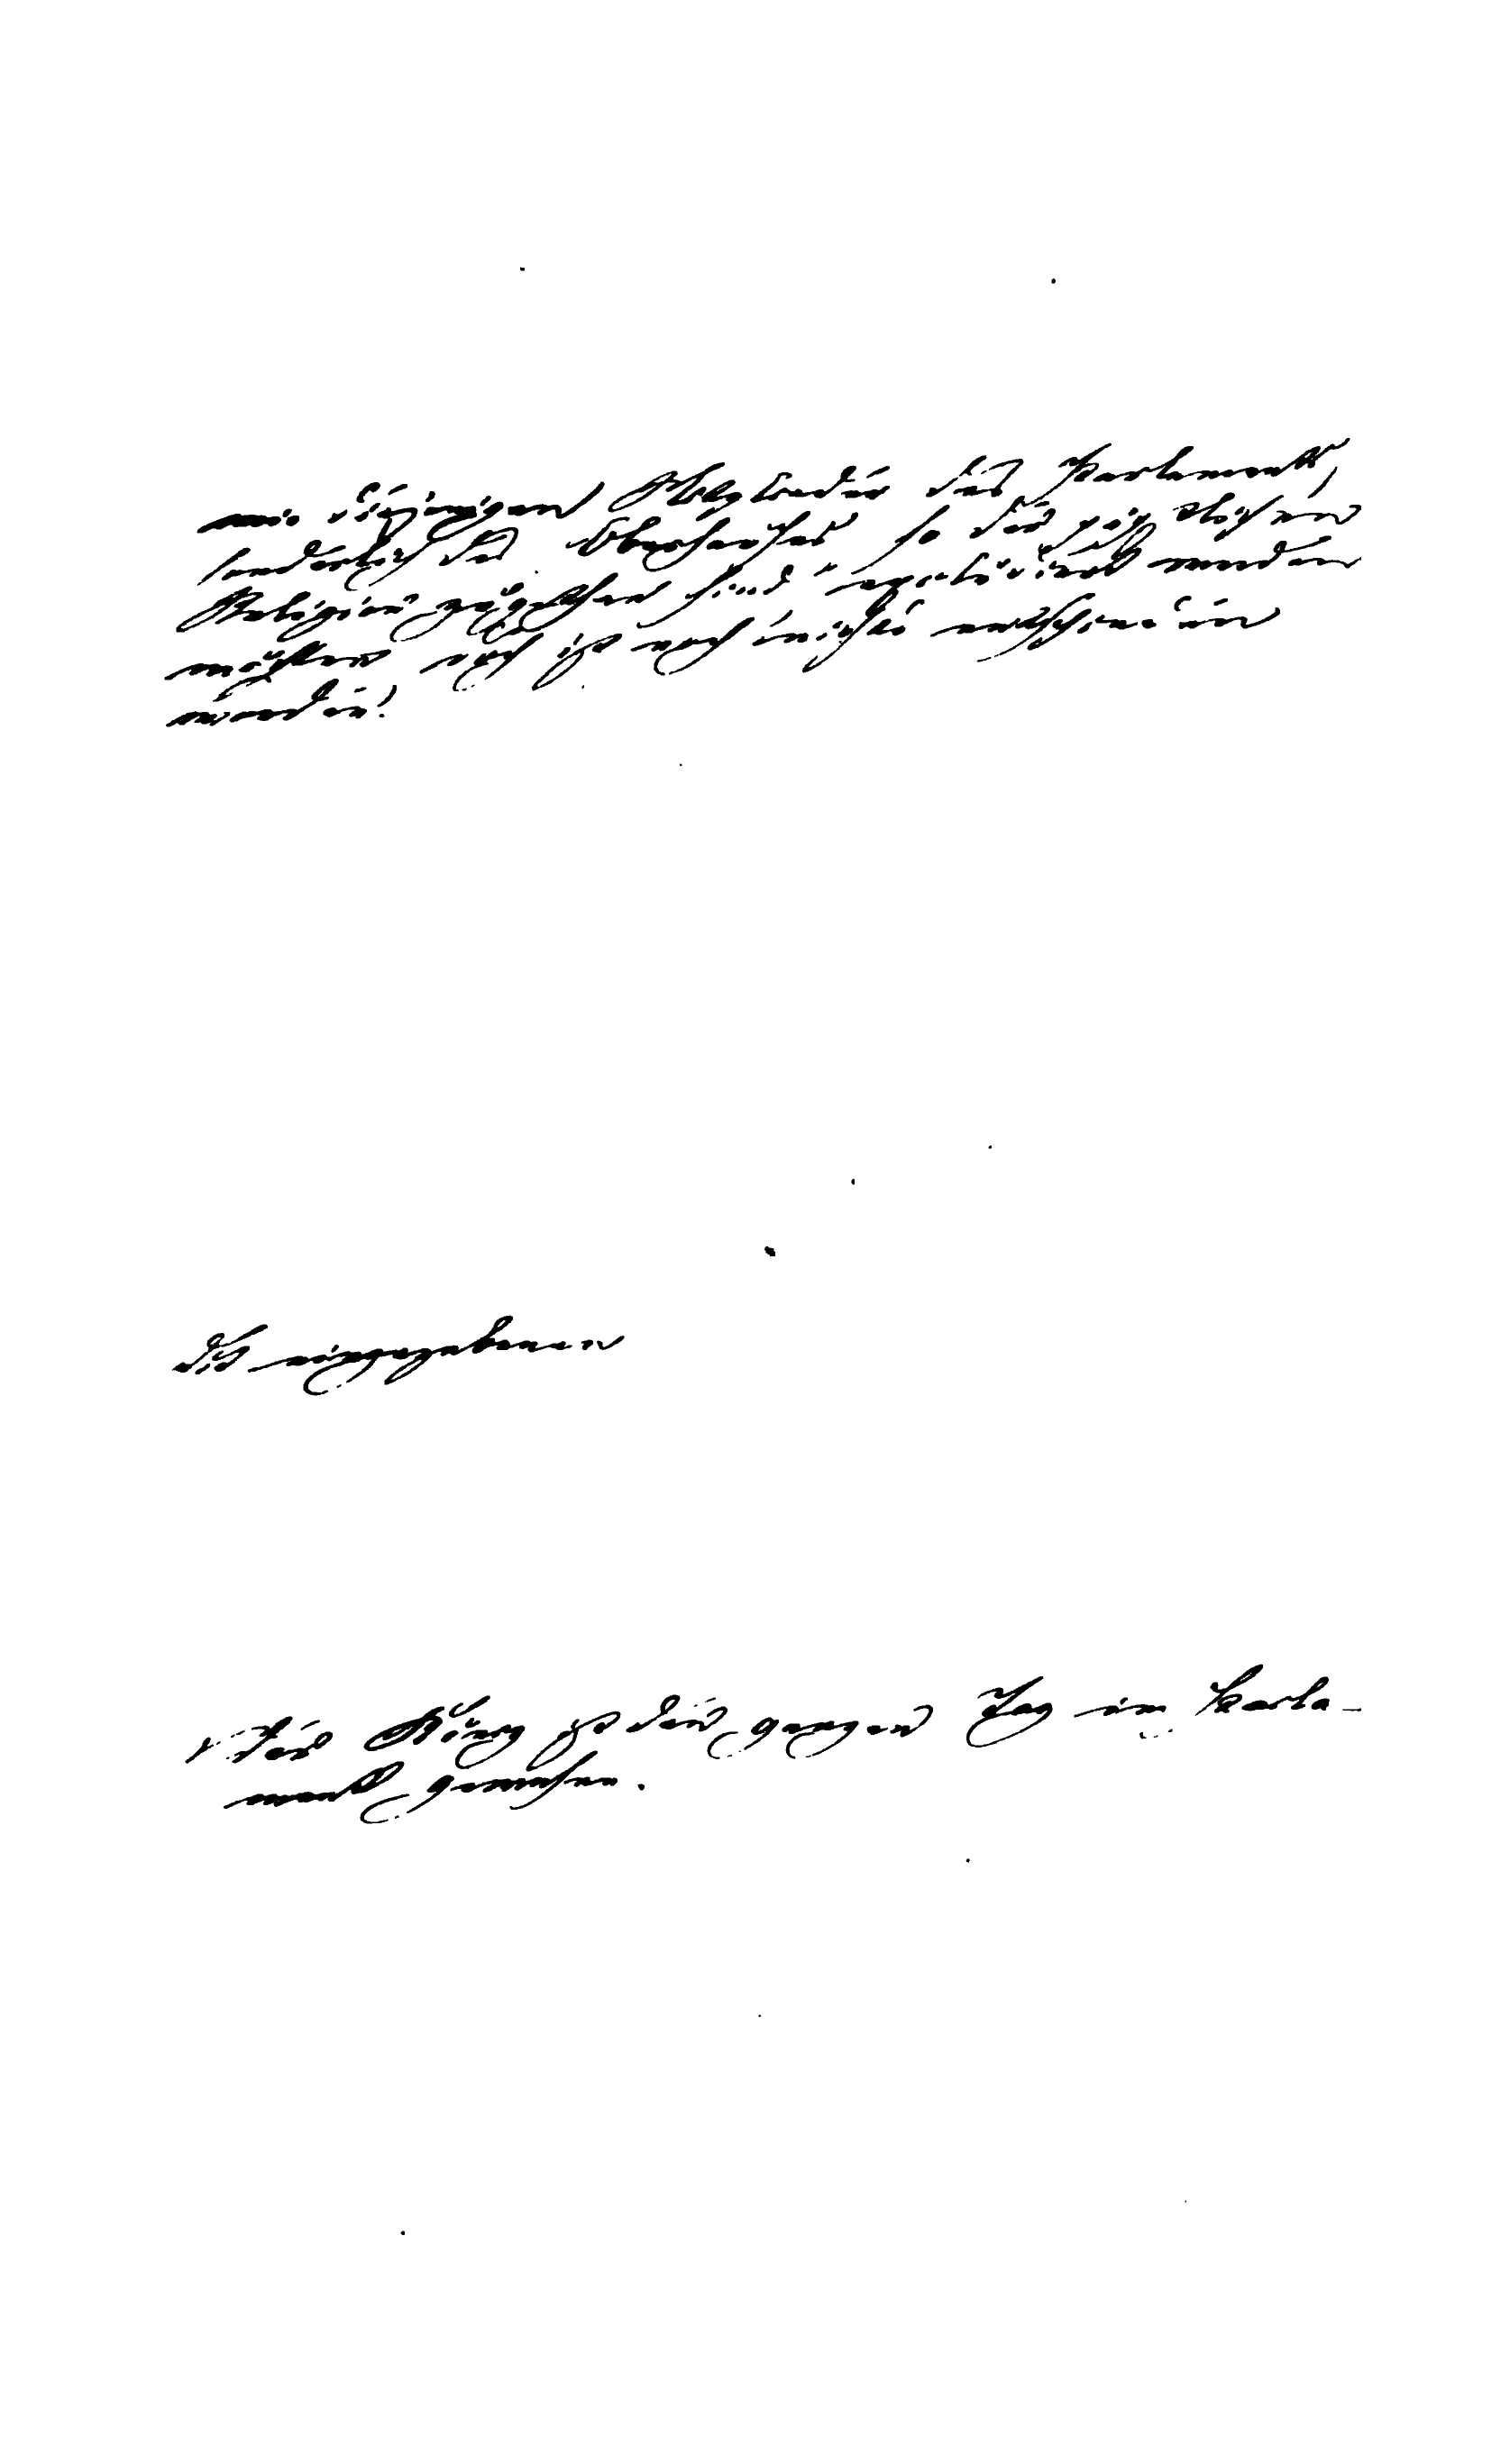 wie diejenigen Mitglieder des Parlaments,
sonderlich des Oberhauses so der päpstlichen
Religion zugethan sind excludiert werden
möchten noch ist noch nichts entschieden
worden!
die eingegebenen
Der König ist den ganzen Tag im Parla-
ment gewesen.